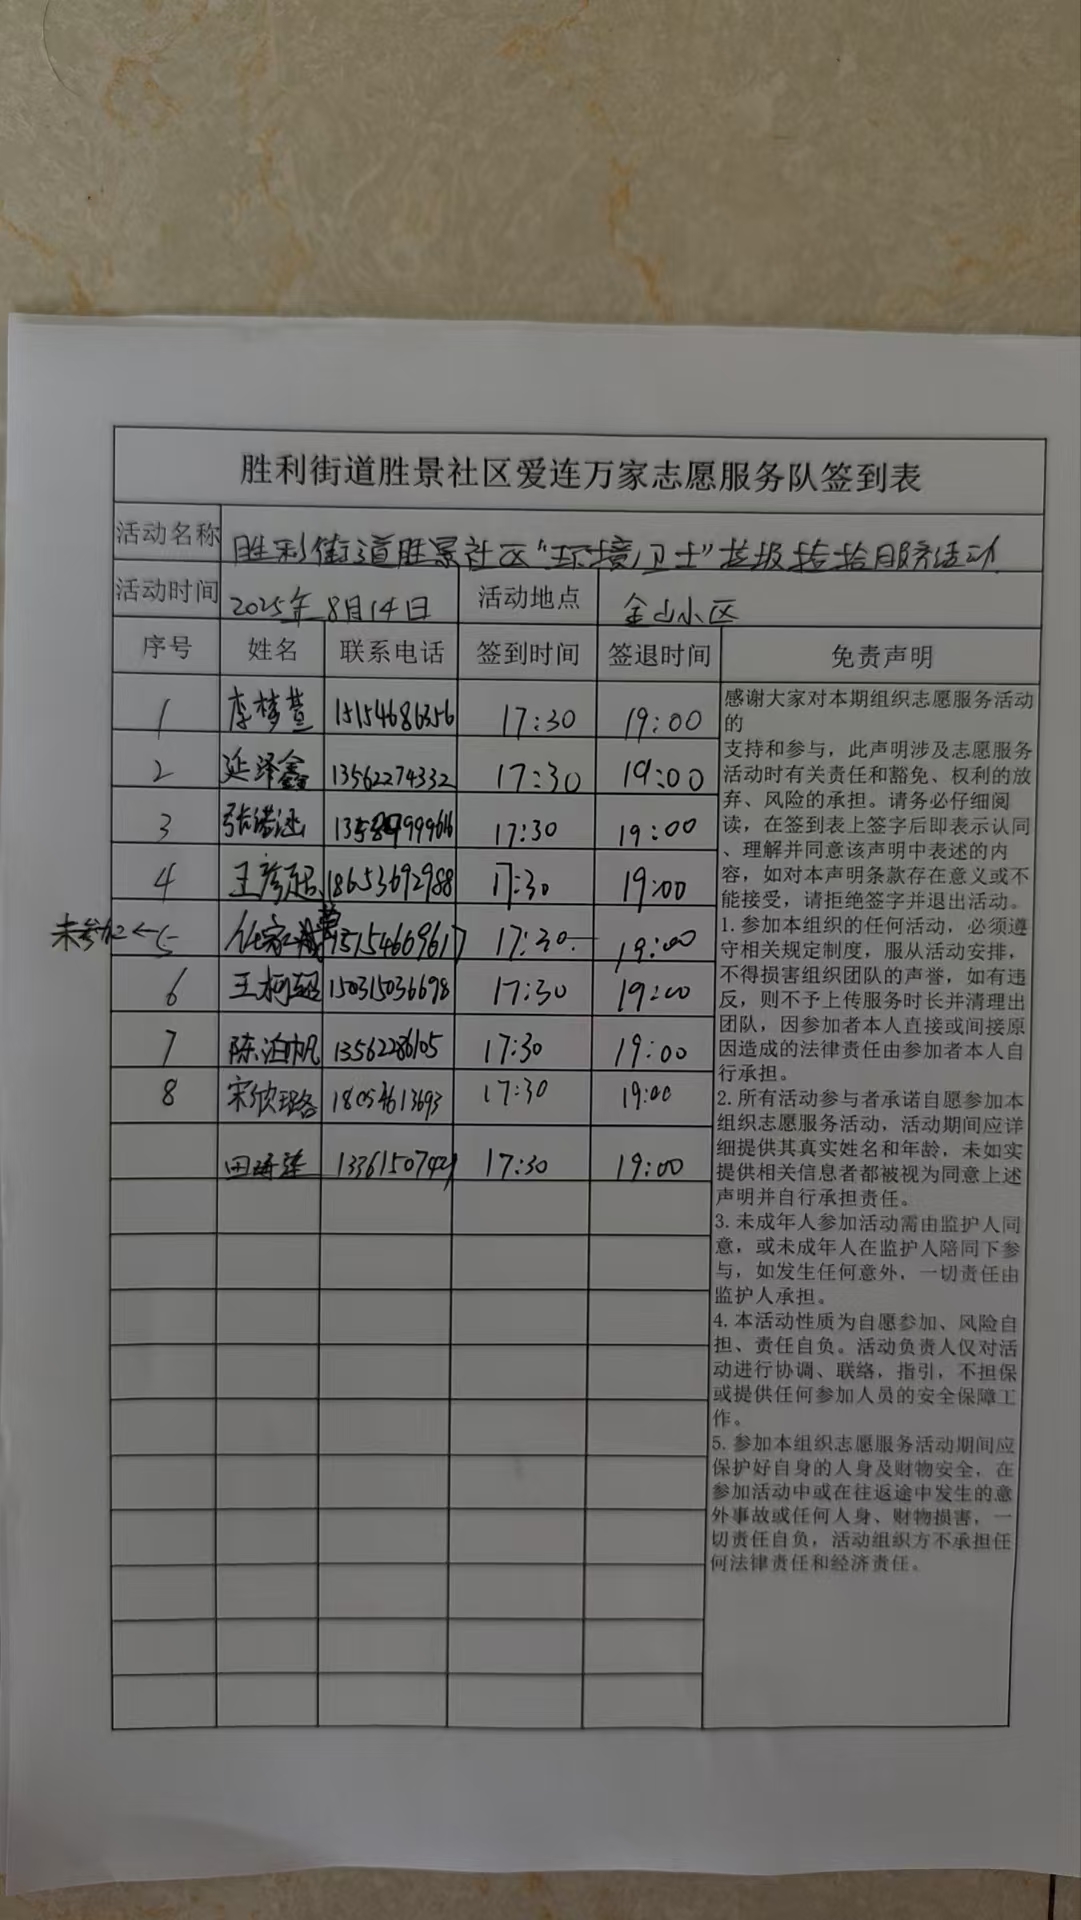 胜利街道胜景社区爱连万家志愿服务队签到表
活动名称 胜利街道胜景社区“环境卫士”垃圾捡拾服务活动
活动时间 2025年8月14日 活动地点 金山小区
序号 姓名 联系电话 签到时间 签退时间 免责声明
1 李梦萱 15154686356 17:30 19:00
2 延泽鑫 13562274332 17:30 19:00
3 17:30 19:00
4 王彦超 18653692988 17:30 19:00
未参加← 5 15154669617 17:30 19:00
6 王柯超 150315036698 17:30 19:00
7 陈泊帆 13562286105 17:30 19:00
8 宋欣璐 18053613693 17:30 19:00
17:30 19:00
感谢大家对本期组织志愿服务活动
的
支持和参与，此声明涉及志愿服务
活动时有关责任和豁免、权利的放
弃、风险的承担。请务必仔细阅
读，在签到表上签字后即表示认同
、理解并同意该声明中表述的内
容，如对本声明条款存在意义或不
能接受，请拒绝签字并退出活动。
1. 参加本组织的任何活动，必须遵
守相关规定制度，服从活动安排，
不得损害组织团队的声誉，如有违
反，则不予上传服务时长并清理出
团队，因参加者本人直接或间接原
因造成的法律责任由参加者本人自
行承担。
2. 所有活动参与者承诺自愿参加本
组织志愿服务活动，活动期间应详
细提供其真实姓名和年龄，未如实
提供相关信息者都被视为同意上述
声明并自行承担责任。
3. 未成年人参加活动需由监护人同
意，或未成年人在监护人陪同下参
与，如发生任何意外，一切责任由
监护人承担。
4. 本活动性质为自愿参加、风险自
担、责任自负。活动负责人仅对活
动进行协调、联络，指引，不担保
或提供任何参加人员的安全保障工
作。
5. 参加本组织志愿服务活动期间应
保护好自身的人身及财物安全，在
参加活动中或在往返途中发生的意
外事故或任何人身、财物损害，一
切责任自负，活动组织方不承担任
何法律责任和经济责任。